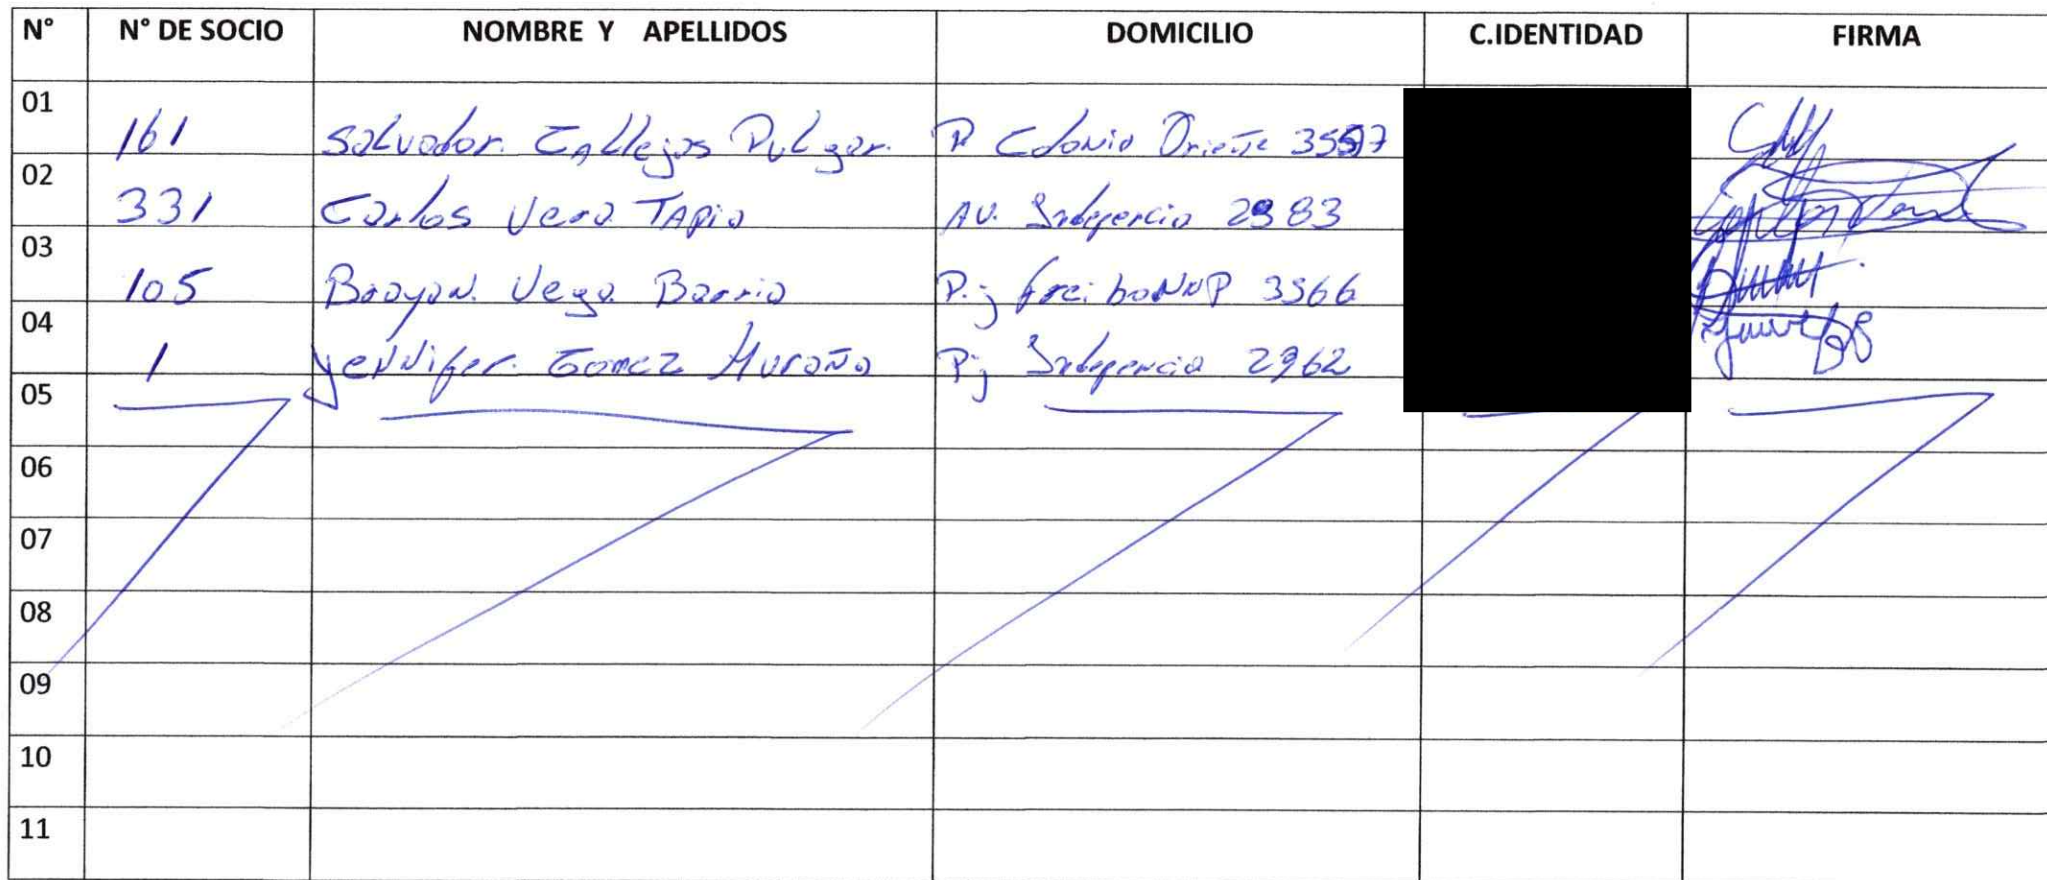 N° N° DE SOCIO NOMBRE Y APELLIDOS DOMICILIO C.IDENTIDAD FIRMA
01 161 Salvador. Callejas Pulgar. P Colonia Oriente
02 331 Carlos Vera Tapia AV. 2983
03 105 Brayan. Vega Barria P.j 3566
04 1 Yennifer. Gomez Muraña Pj 2962
05
06
07
08
09
10
11